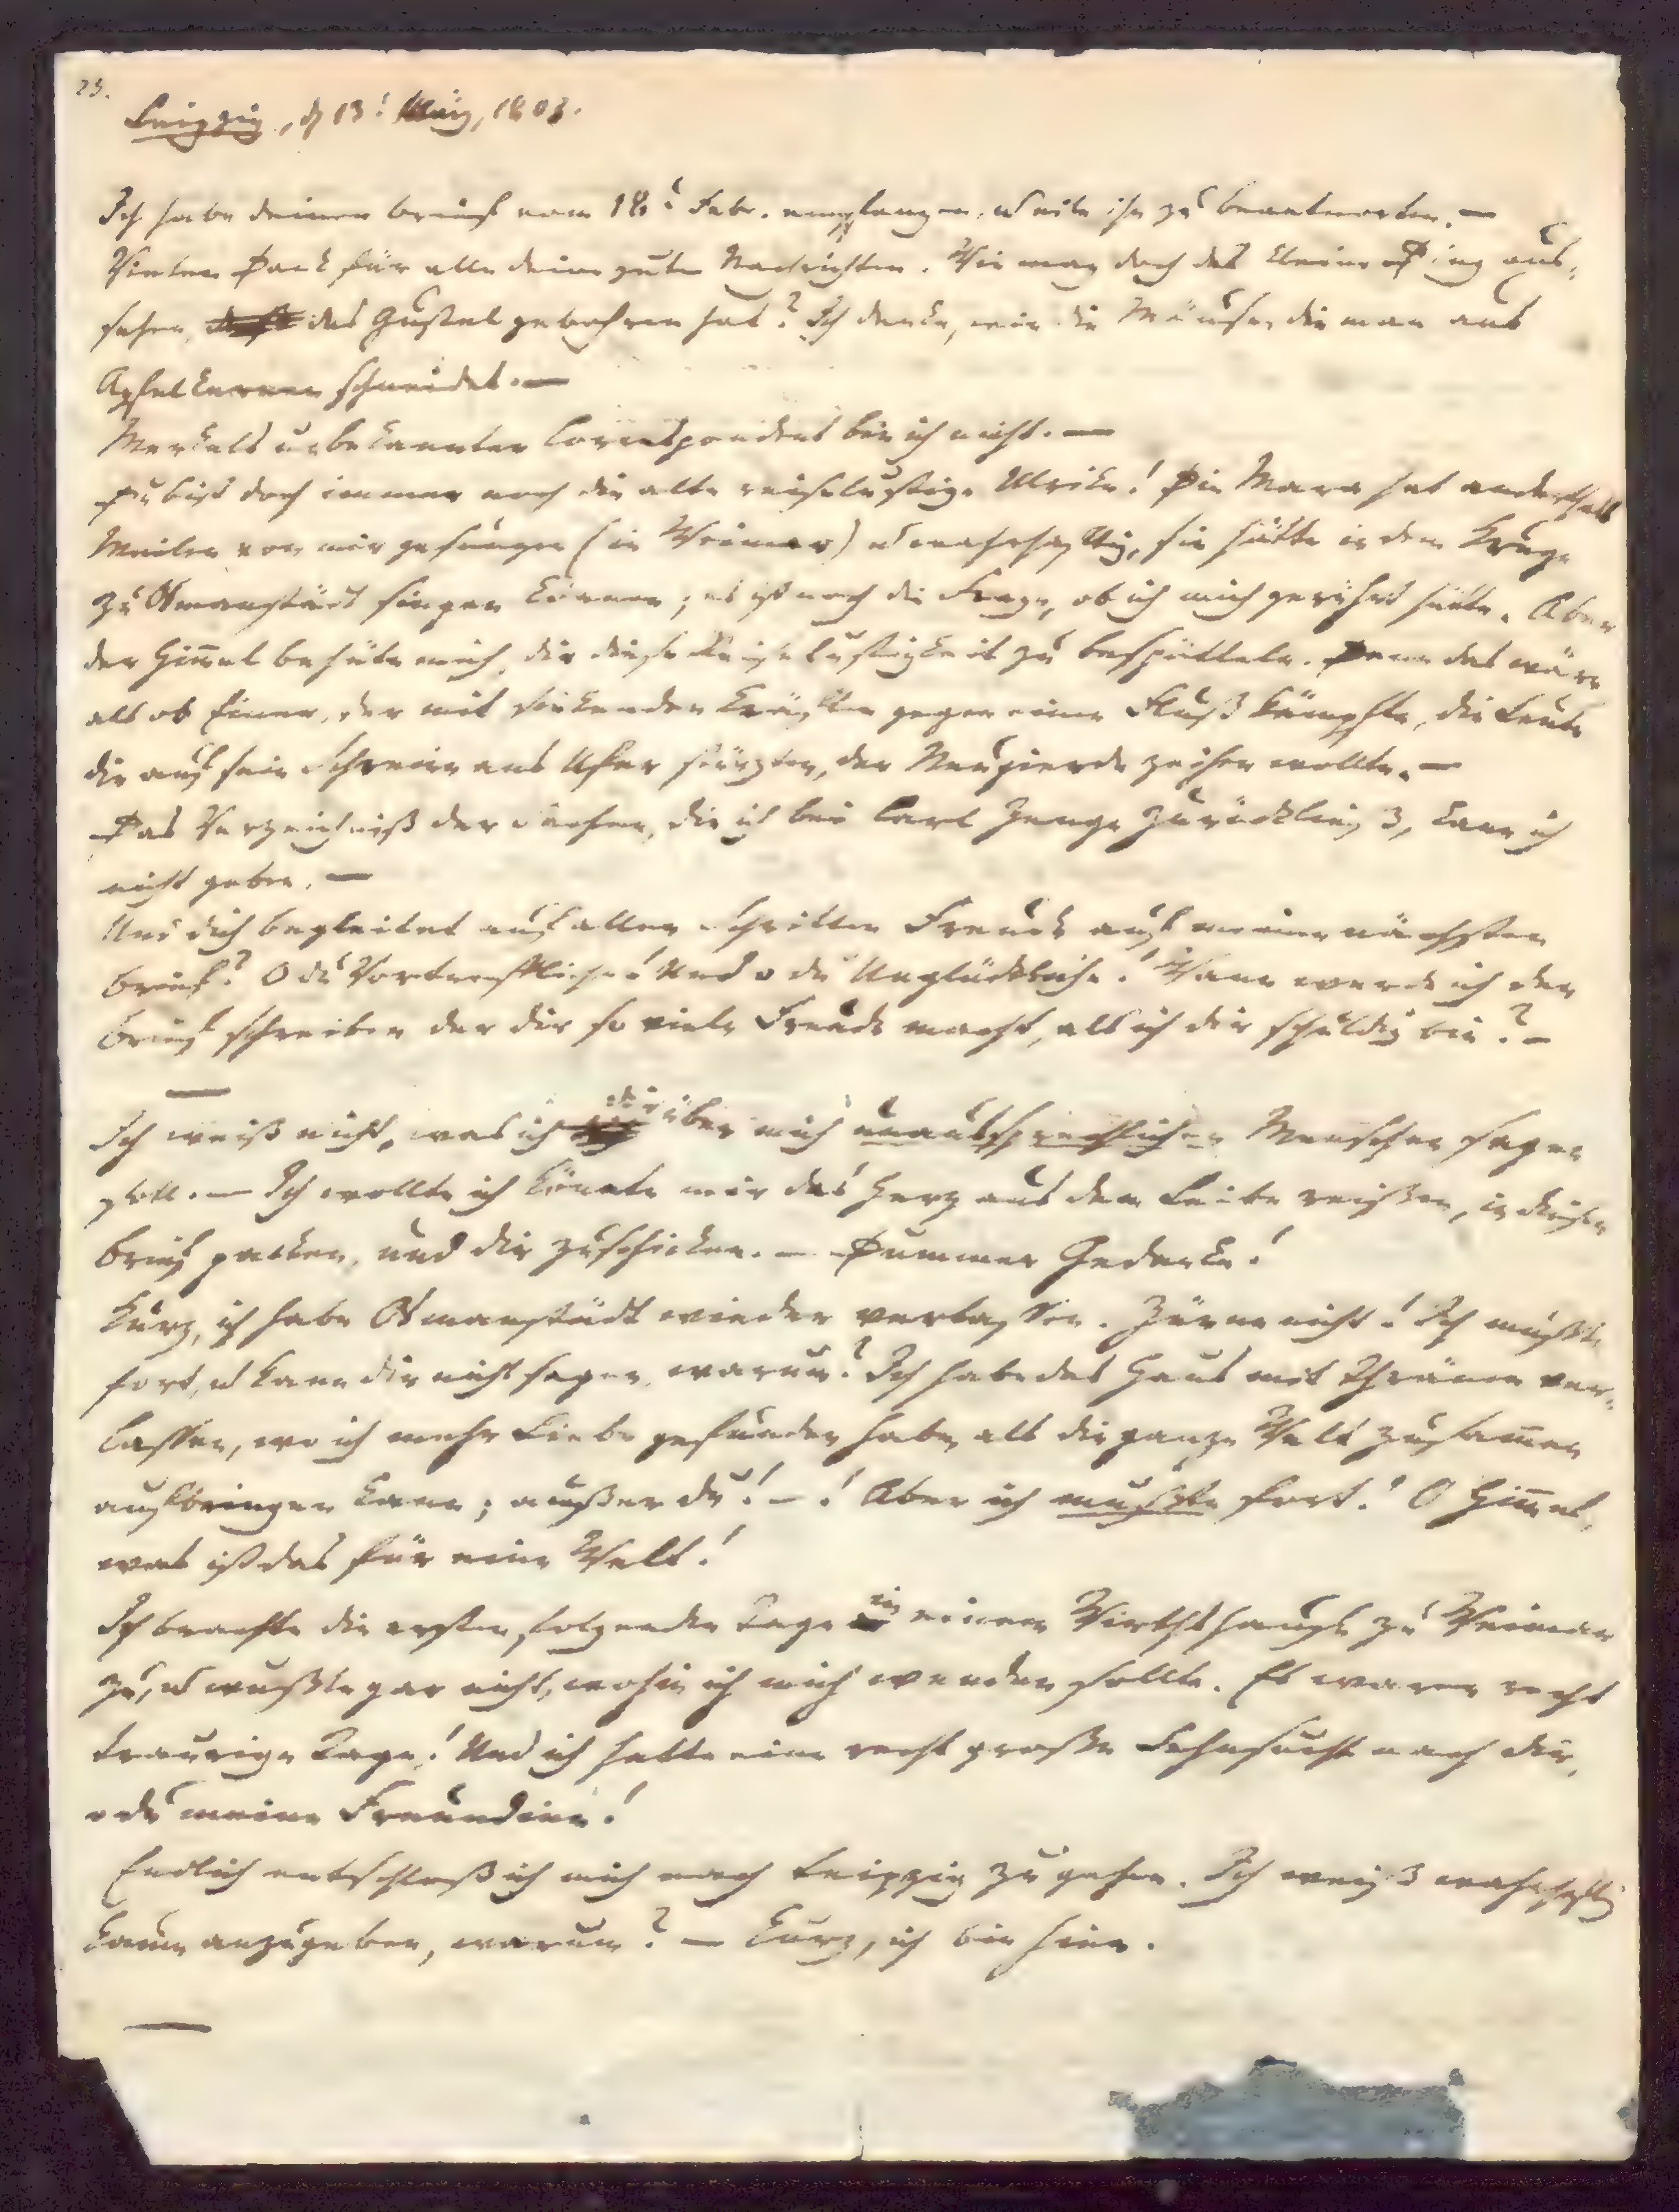 25.
Leipzig, d 13t März, 1803.
Ich habe deinen Brief vom 18t Febr. empfangen, u eile ihn zu beantworten. —
Vielen Dank für alle deine guten Nachrichten. Wie mag doch das kleine Ding aus-
sehen, das Gustel gebohren hat? Ich denke, wie die Mäuse, die man aus
Apfelkernen schneidet. —
Merkels unbekannter Correspondent bin ich nicht. —
Du bist doch immer noch die alte reiselustige Ulrike! Die Mara hat anderthalb
Meilen von mir gesungen (in Weimar) u wahrhaftig, sie hätte in dem Kruge
zu Osmanstädt singen können; es ist noch die Frage, ob ich mich gerührt hätte. Aber
der Himmel behüte mich, dir diese Reiselustigkeit zu bespötteln. Denn das wäre
als ob Einer, der mit sinkenden Kräften gegen einen Fluß kämpfte, die Leute
die auf sein Schreien ans Ufer stürzten, der Neugierde zeihen wollte. —
Das Verzeichniß der Sachen, die ich bei Carl Zenge zurückließ, kann ich
nicht geben. —
Und dich begleitet auf allen Schritten Freude auf meinen nächsten
Brief? O du Vortreffliche! Und o du Unglückliche! Wann werde ich den
Brief schreiben der dir so viele Freude macht, als ich dir schuldig bin? —
—
Ich weiß nicht, was ich dir über mich unaussprechlichen Menschen sagen
soll. — Ich wollte ich könnte mir das Herz aus dem Leibe reißen, in diesen
Brief packen, und dir zuschicken. — Dummer Gedanke!
Kurz, ich habe Osmanstädt wieder verlassen. Zürne nicht! Ich mußte
fort, u kann dir nicht sagen, warum? Ich habe das Haus mit Thränen ver-
lassen, wo ich mehr Liebe gefunden habe, als die ganze Welt zusammen
aufbringen kann; außer du! — ! Aber ich mußte fort! O Himmel,
was ist das für eine Welt!
Ich brachte die ersten folgenden Tage in einem Wirthshause zu Weimar
zu, u wußte gar nicht, wohin ich mich wenden sollte. Es waren recht
traurige Tage! Und ich hatte eine recht große Sehnsucht nach dir,
o du meine Freundinn!
Endlich entschloß ich mich nach Leipzig zu gehen. Ich weiß wahrhaftig
kaum anzugeben, warum? — Kurz, ich bin hier.
—